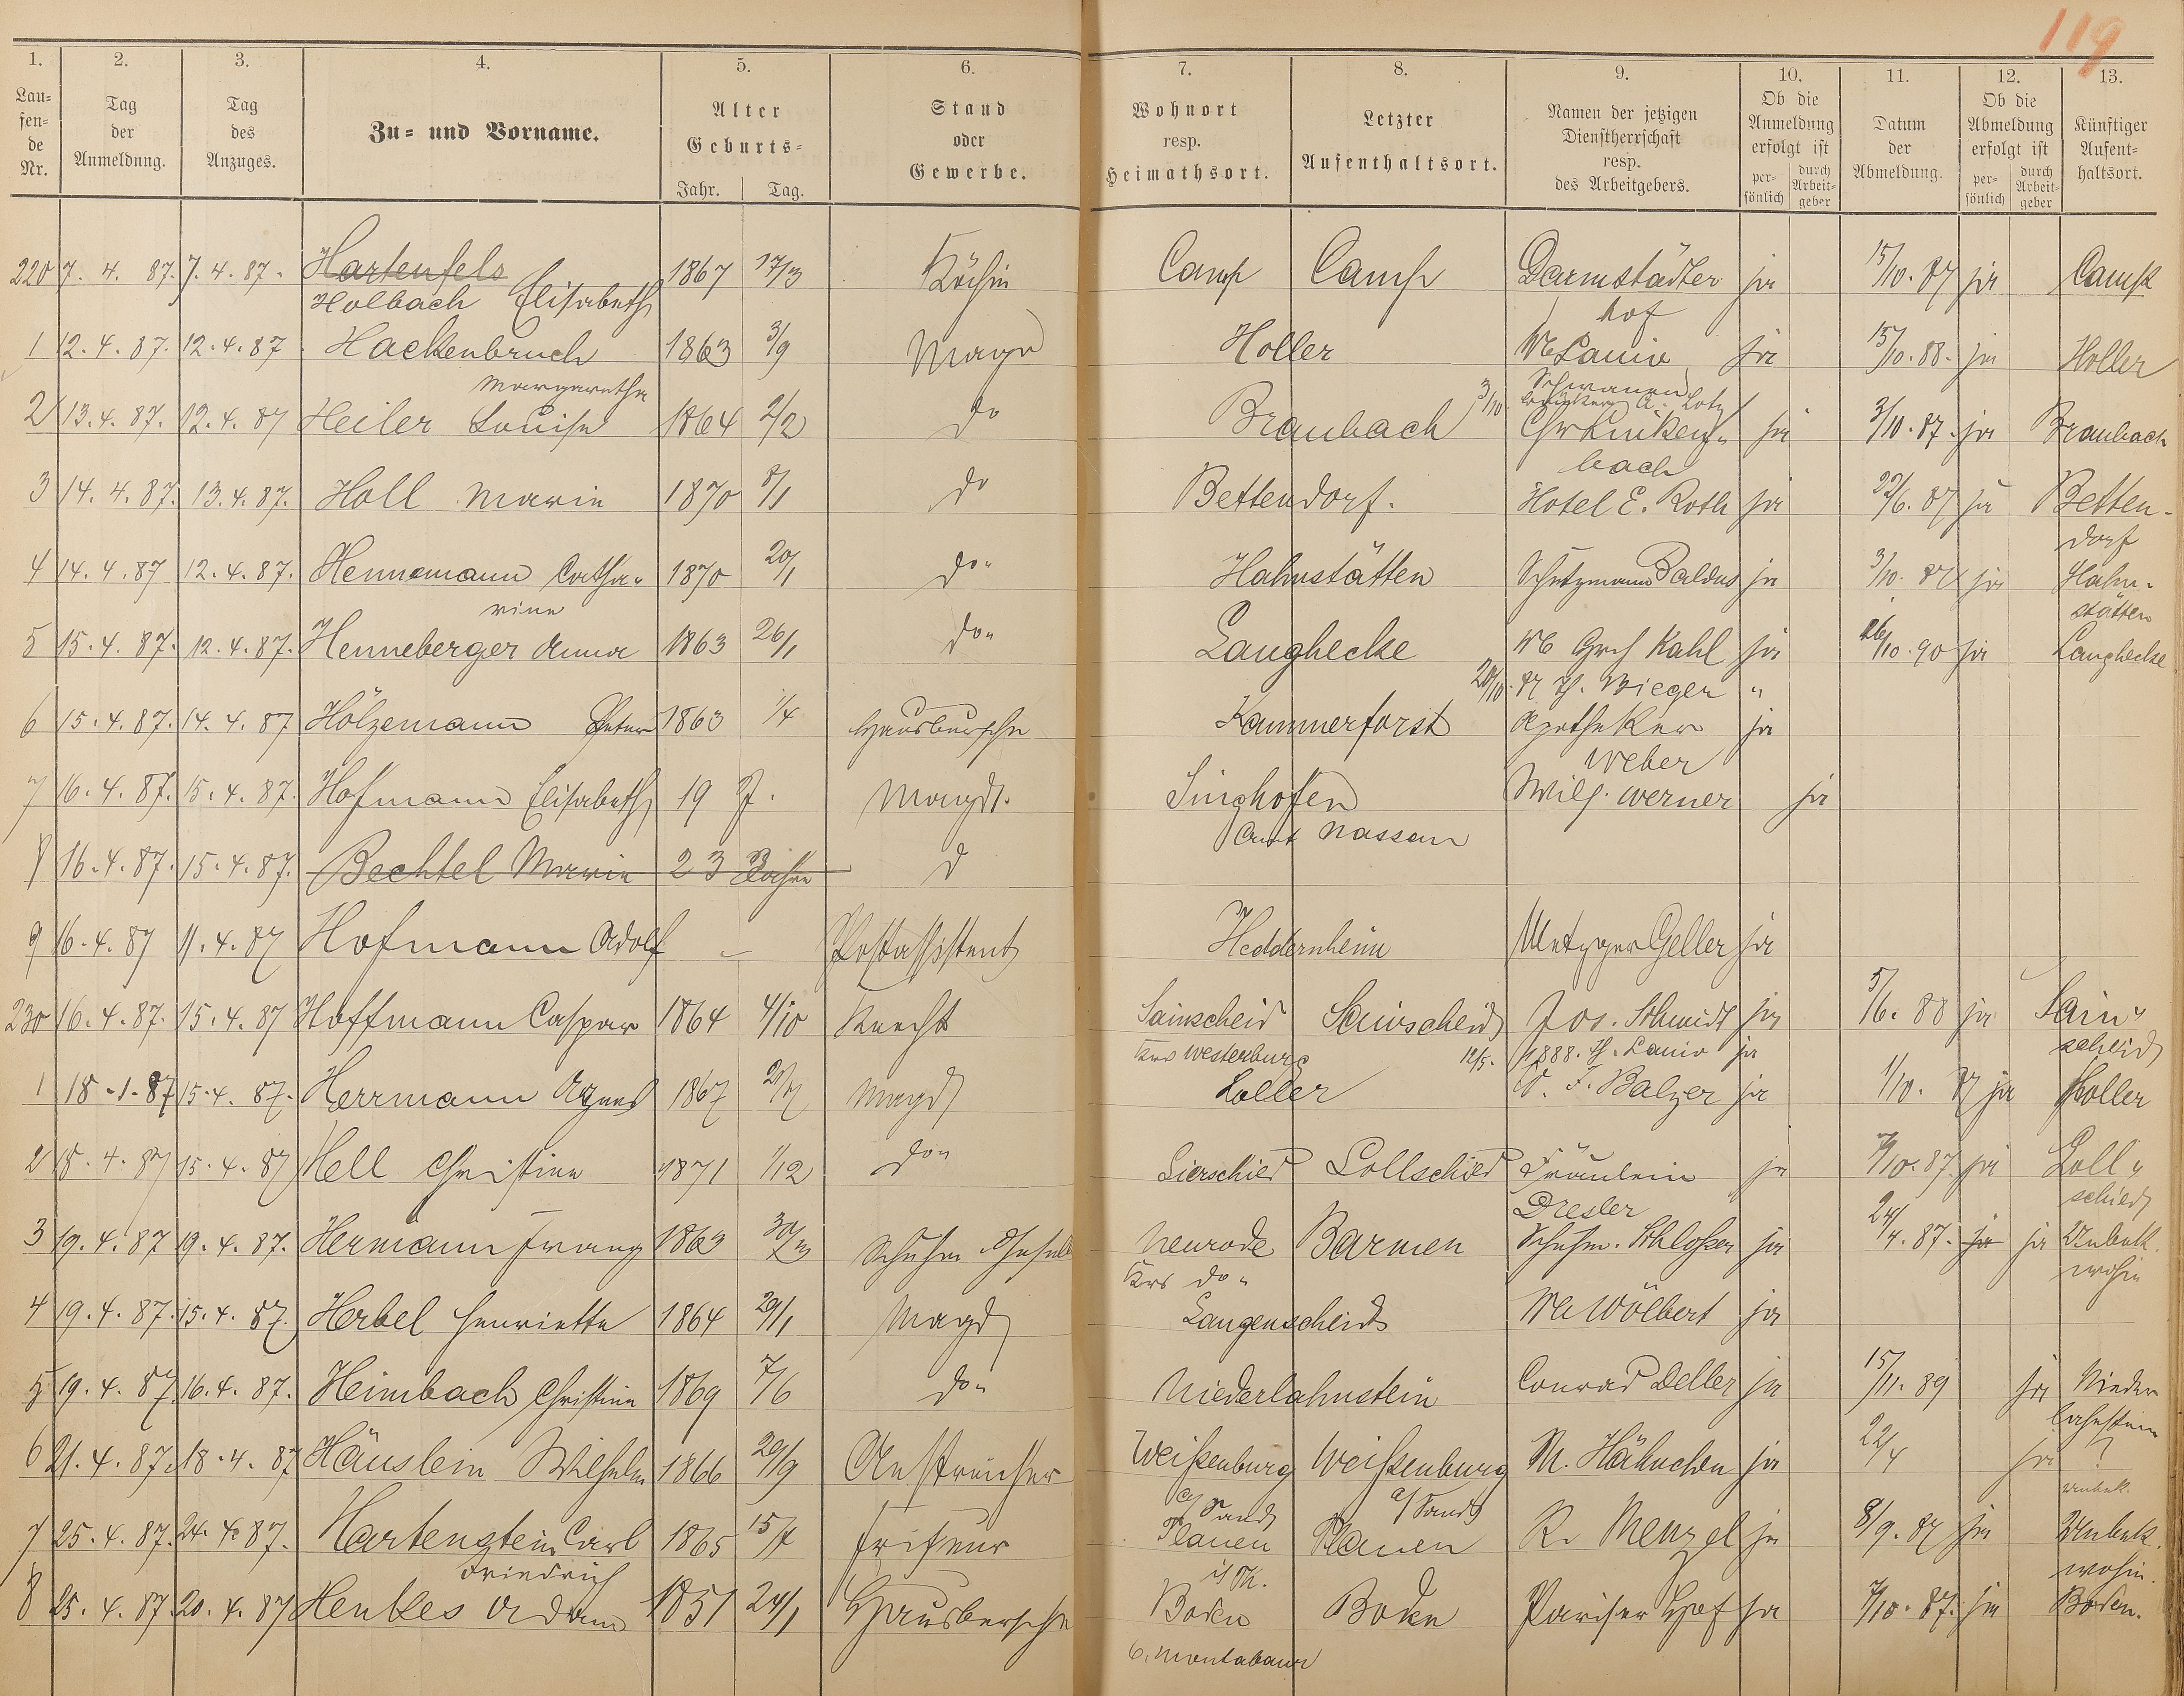 119
1. 2. 3. 4. 5. 6. 7. 8. 9. 10. 11. 12. 13.
Lau-
fen-
de
Nr.
Tag
der
Anmeldung.
Tag
des
Anzuges.
Zu- und Vorname.
Alter
Geburts-
Jahr. Tag.
Stand
oder
Gewerbe.
Wohnort
resp.
Heimathsort.
Letzter
Aufenthaltsort.
Namen der jetzigen
Dienstherrschaft
resp.
des Arbeitgebers.
Ob die
Anmeldung
erfolgt ist
per-
sönlich
durch
Arbeit-
geber
Datum
der
Abmeldung.
Ob die
Abmeldung
erfolgt ist
per-
sönlich
durch
Arbeit-
geber
Künftiger
Aufent-
haltsort.
220 7. 4. 87. 7. 4. 87. Hartenfels 1867 17/3 Köchin Camp Camp Darmstädter ja 15/10. 87 ja Camp
Holbach Elisabeth hof
1 12. 4. 87. 12. 4. 87 Hackenbruch 1863 3/9 Magd Holler We Lanio ja 15/10. 88. ja Holler
Margaretha
2 13. 4. 87. 12. 4. 87 Heiler Louise 1864 2/2 do Braubach 3/10. Chr Linken- ja 3/10. 87. ja Braubach
bach
3 14. 4. 87. 13. 4. 87. Holl Marie 1870 8/1 do Bettendorf. Hotel E. Roth ja 22/6. 87 ja Betten-
dorf
4 14. 4. 87 12. 4. 87. Hennemann Catha- 1870 20/1 do" Hahnstätten Schutzmann Baldus ja 3/10. 87 ja Hahn-
rine stätten
5 15. 4. 87. 12. 4. 87. Henneberger Anna 1863 26/1 do" Langhecke We Grch Kahl ja 26/10. 90 ja Langhecke
20/10. 87 H. Bieger "
6 15. 4. 87. 14. 4. 87 Hölzemann Peter 1863 1/4 Hausbursche Kammerforst Apotheker ja
Weber
7 16. 4. 87. 15. 4. 87. Hofmann Elisabeth 19 J. Magd. Singhofen Wilh. Werner ja
Amt Nassau
8 16. 4. 87. 15. 4. 87. Bechtel Marie 23 Jahre d
9 16. 4. 87 11. 4. 87 Hofmann Adolf — Postassistent Heddernheim Metzger Geller ja
230 16. 4. 87. 15. 4. 87 Hoffmann Caspar 1864 4/10 Knecht Sainscheid Sainscheid Jos. Schmidt ja 5/6. 88 ja Sain"
Krs Westerburg 12/5. 1888. H. Lanio ja scheid
1 18. 1. 87 15. 4. 87. Herrmann Agnes 1867 Magd Holler W. F. Balzer ja 1/10. 87 ja Holler
2 18. 4. 87 15. 4. 87 Hell Christine 1871 1/12 do" Lierschied Lollschied Fräulein ja 7/10. 87. ja Loll"
Dresler schied
3 19. 4. 87 19. 4. 87. Hermann Franz 1863 30/3 Schuhm. Gesell Neurode Barmen Schuhm. Schlosser ja 24/4. 87. ja ja Unbek.
Krs do" wohin
4 19. 4. 87. 15. 4. 87. Herbel Henriette 1864 29/1 Magd Langenscheid We Wölbert ja
5 19. 4. 87. 16. 4. 87. Heimbach Christine 1869 7/6 do" Niederlahnstein Conrad Deller ja 15/11. 89 ja Nieder
lahnstein
6 21. 4. 87. 18. 4. 87 Häuslein Wilhelm 1866 29/9 Anstreicher Weißenburg Weißenburg M. Hähnchen ja 22/4 ja ?
a/ Sand a/ Sand unbek.
7 25. 4. 87. 24. 4. 87. Hartenstein Carl 1865 15/7 Friseur Plauen Plauen R. Menzel ja 8/9. 87 ja Unbek.
Friedrich wohin.
8 25. 4. 87. 20. 4. 87 Henkes Adam 1851 24/1 Hausbursche Boden Boden Pariser Hof ja 7/10. 87. ja Boden.
b. Montabaur